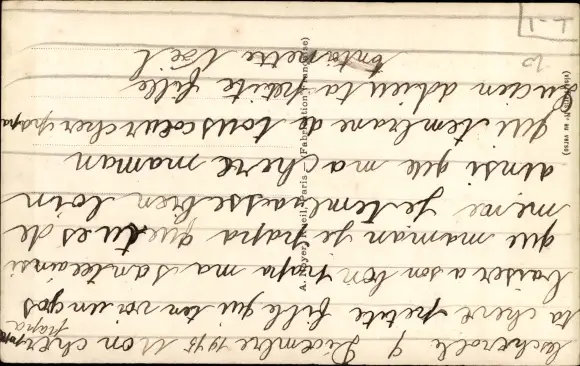 9 Décembre 1915 Mon cher
papa
ta chere petite fille qui ten voi un gos
baiser a son bon papa ma santée ainsi
que maman je papa que tu es de
même je tembrasse bien loin
ainsi que ma chere maman
qui tembrane de tous coeur cher papa
Lucien adieu ta petite fille
Paris — (Fabrication Française)